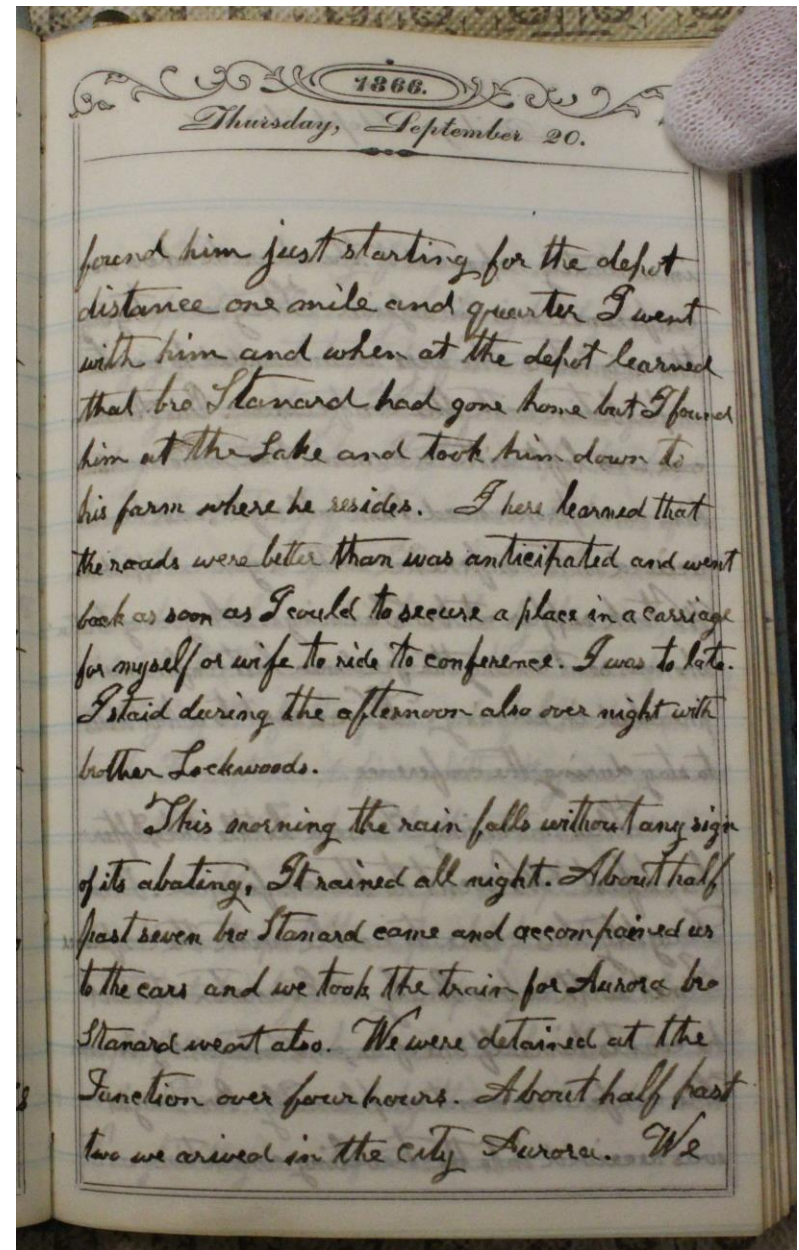 1866.
Thursday, September 20.
found him just starting for the depot
distance one mile and quarter I went
with him and when at the depot learned
that bro Stanard had gone home but I found
him at the Lake and took him down to
his farm where he resides. I here learned that
the roads were better than was anticipated and went
back as soon as I could to secure a place in a carriage
for myself or wife to ride to conference. I was to late.
I staid during the afternoon also over night with
brother Lockwoods.
This morning the rain falls without any sign
of its abating, It rained all night. About half
past seven bro Stanard came and accompained us
to the cars and we took the train for Aurora bro
Stanard went also. We were detained at the
Junction over four hours. About half past
two we arived in the city Aurora. We